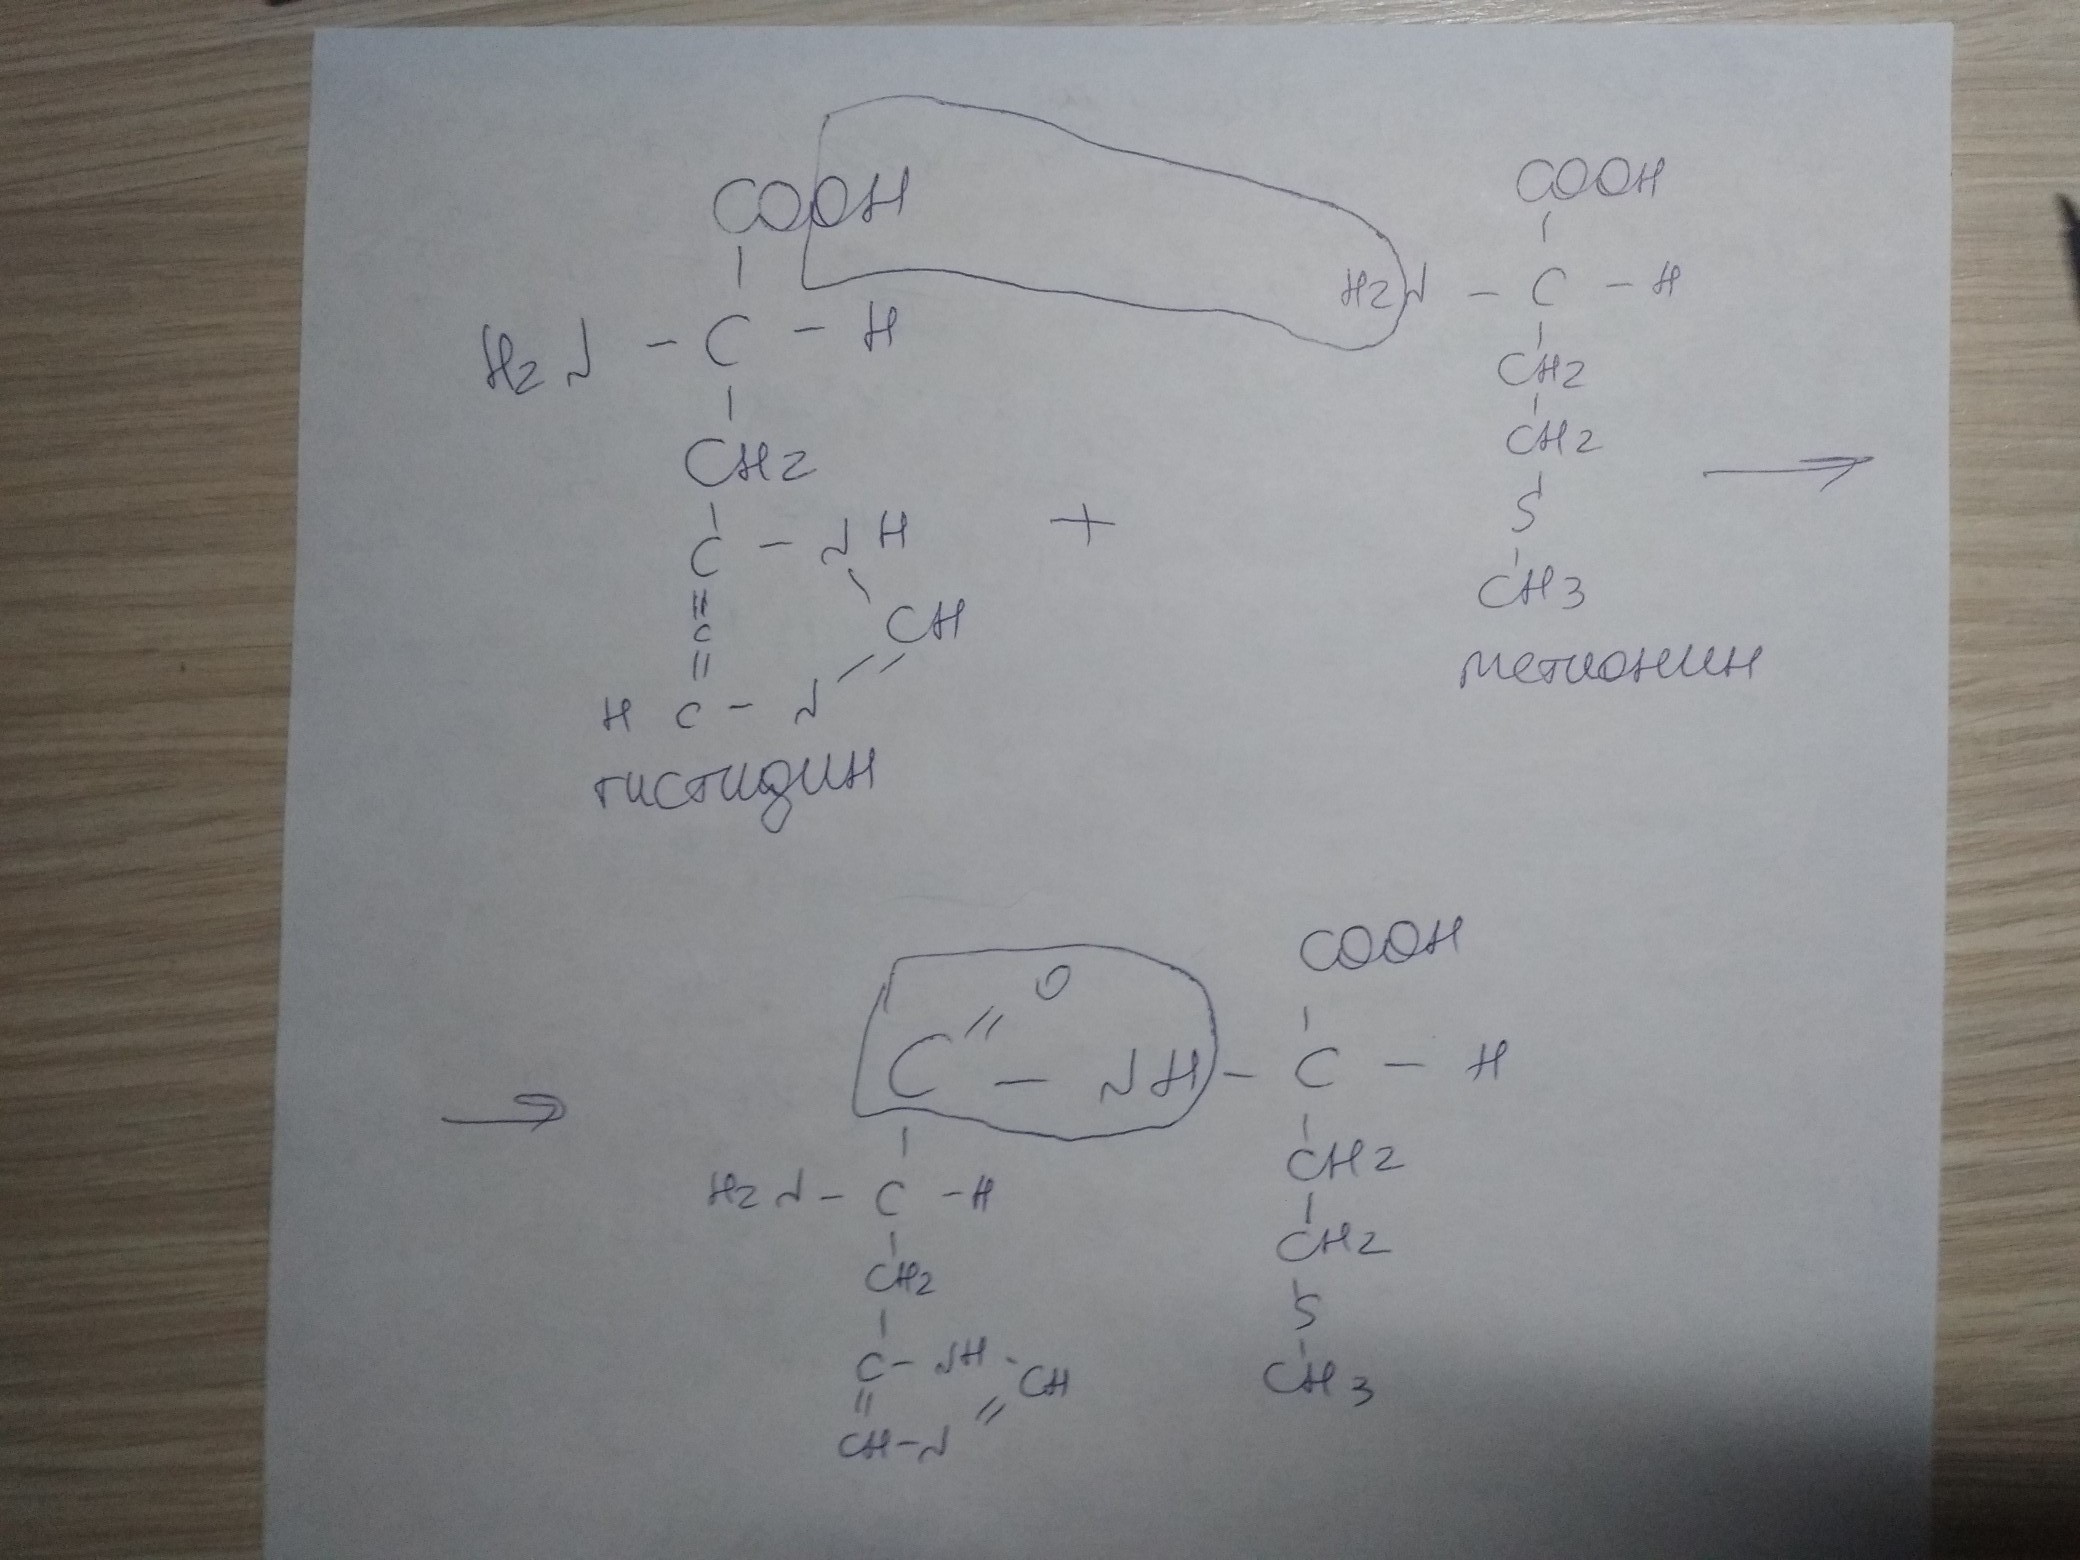 COOH
COOH
H2N - C - H
H2N - C - H
CH2
CH2
CH2
C - NH
+
S
→
C
CH
CH3
HC - N
метионин
гистидин
COOH
O
→ C - NH - C - H
H2N - C - H
CH2
CH2
CH2
S
C - NH - CH
CH3
CH - N